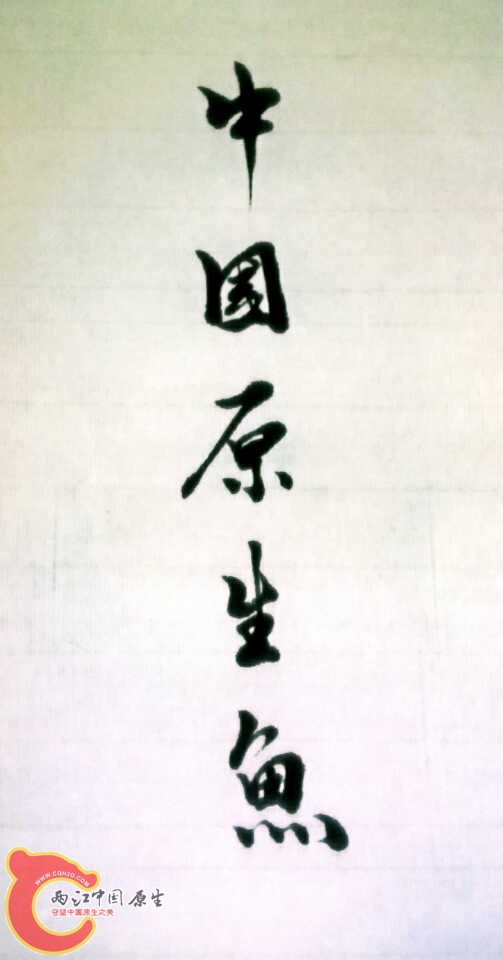 中
國
原
生
魚
WWW.CQH2O.COM
两江中国原生
守望中国原生之美